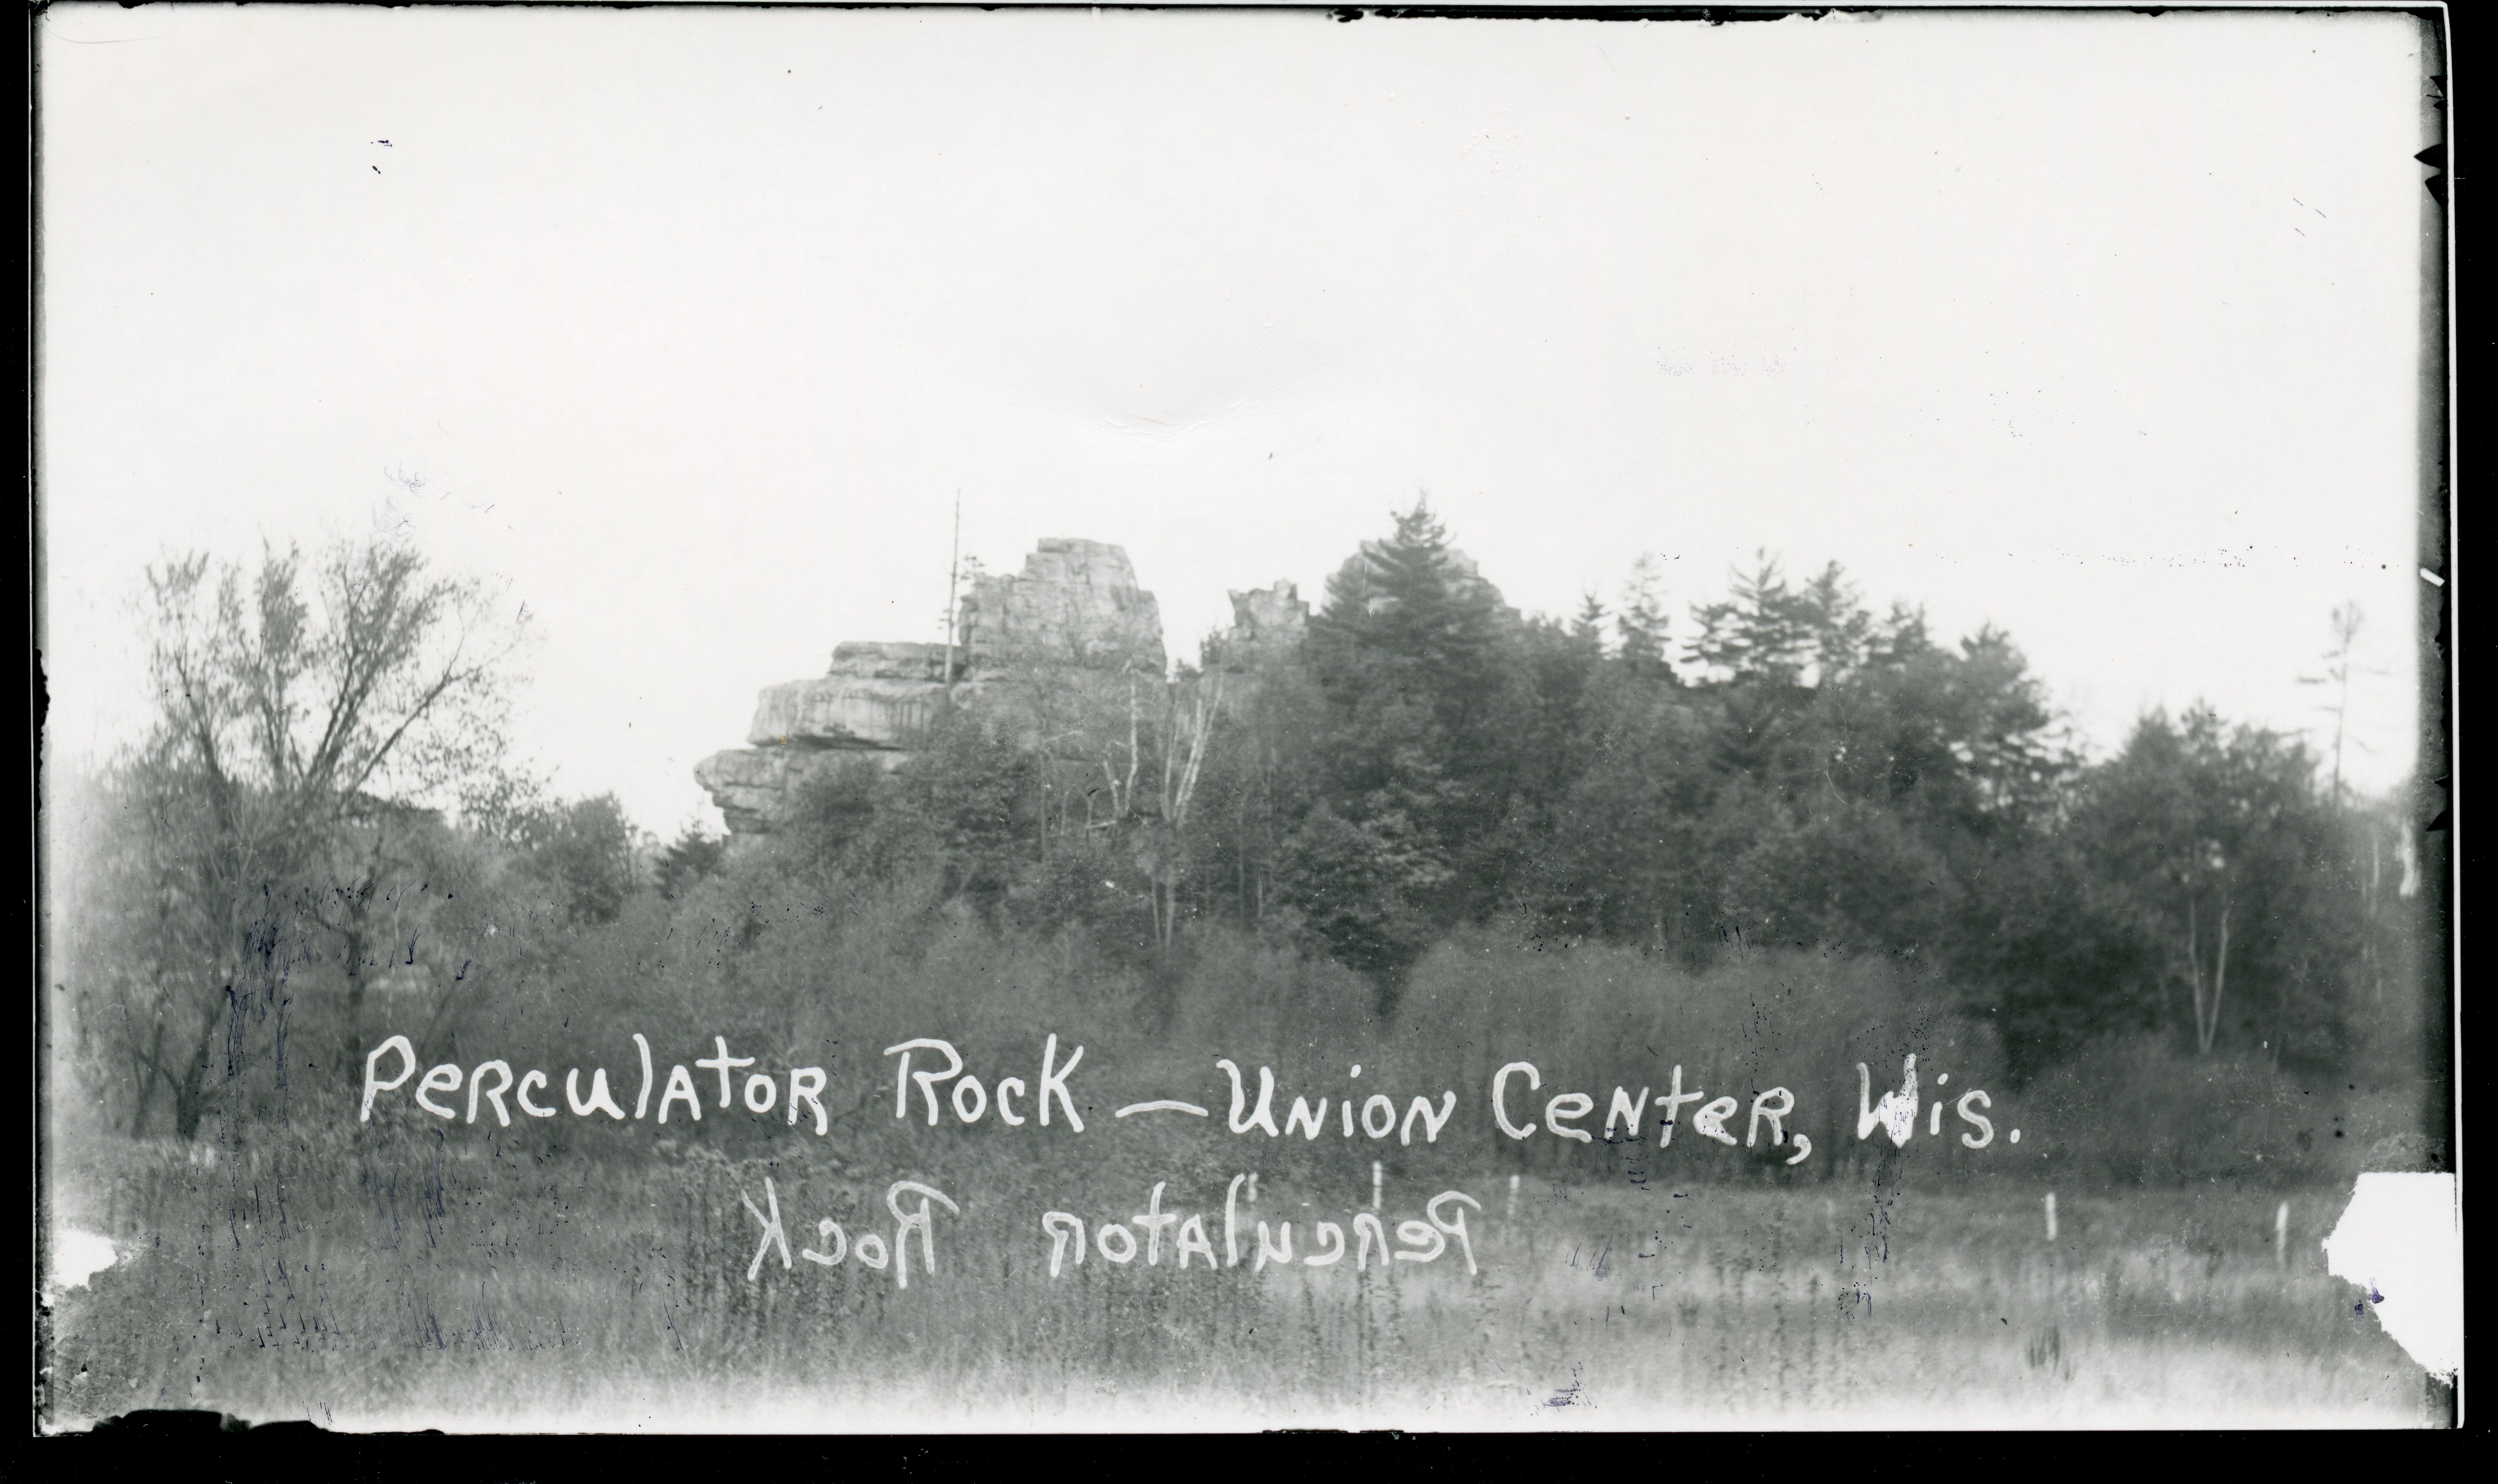 Perculator Rock — Union Center, Wis.
Perculator Rock